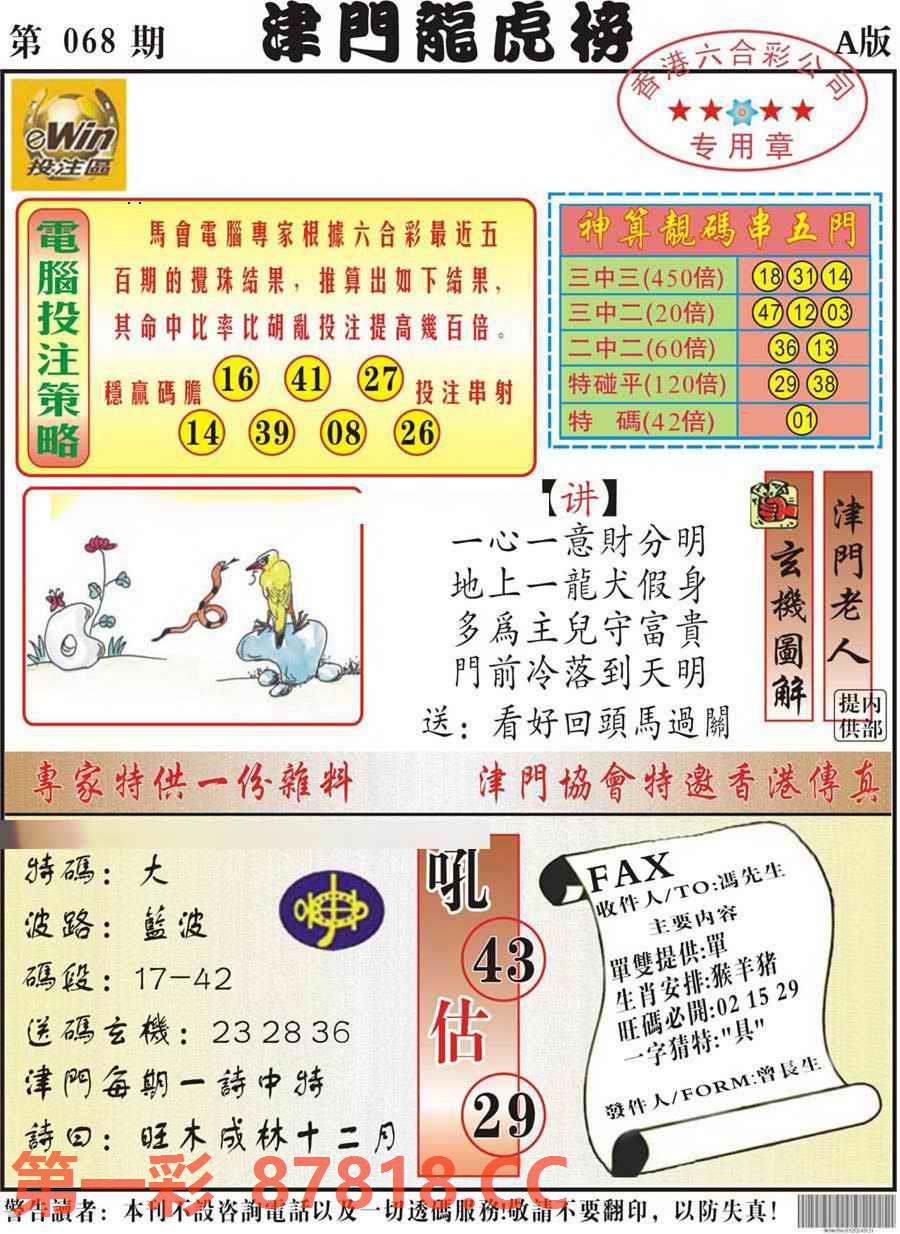 第 068 期
津門龍虎榜
A版
香港六合彩公司
专用章
eWin
投注區
電腦投注策略
馬會電腦專家根據六合彩最近五
百期的攪珠結果，推算出如下結果，
其命中比率比胡亂投注提高幾百倍。
穩贏碼膽 16 41 27 投注串射
14 39 08 26
神算靚碼串五門
三中三(450倍) 18 31 14
三中二(20倍) 47 12 03
二中二(60倍) 36 13
特碰平(120倍) 29 38
特 碼(42倍) 01
【讲】
一心一意財分明
地上一龍犬假身
多爲主兒守富貴
門前冷落到天明
送：看好回頭馬過關
玄機圖解
津門老人
提供
内部
專家特供一份雜料
津門協會特邀香港傳真
特碼：大
波路：藍波
碼段：17-42
送碼玄機：23 28 36
津門每期一詩中特
詩曰：旺木成林十二月
吼
43
估
29
FAX
收件人/TO:馮先生
主要内容
單雙提供:單
生肖安排:猴羊猪
旺碼必開:02 15 29
一字猜特:"具"
發件人/FORM:曾長生
第一彩 87818.CC
警告讀者：本刊不設咨詢電話以及一切透碼服務!敬請不要翻印，以防失真!